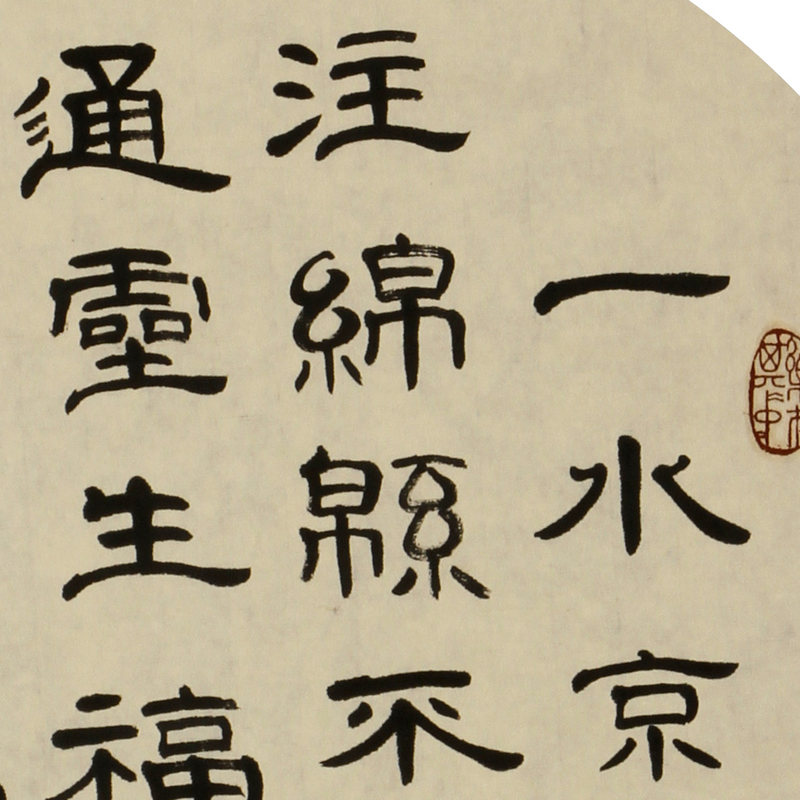 一水京
注綿緜不
通靈生福